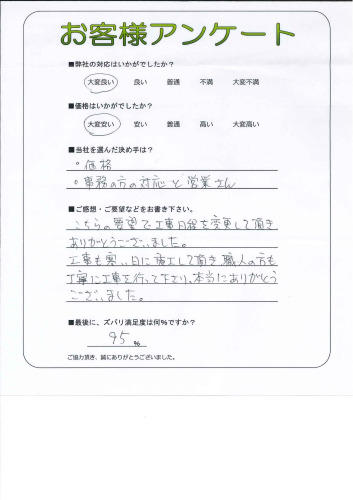 お客様アンケート
■弊社の対応はいかがでしたか？
大変良い 良い 普通 不満 大変不満
■価格はいかがでしたか？
大変安い 安い 普通 高い 大変高い
■当社を選んだ決め手は？
・価格
・事務の方の対応と営業さん
■ご感想・ご要望などをお書き下さい。
こちらの要望で工事日程を変更して頂き
ありがとうございました。
工事も寒い日に施工して頂き、職人の方も
丁寧に工事を行って下さり、本当にありがとう
ございました。
■最後に、ズバリ満足度は何%ですか？
95 %
ご協力頂き、誠にありがとうございました。